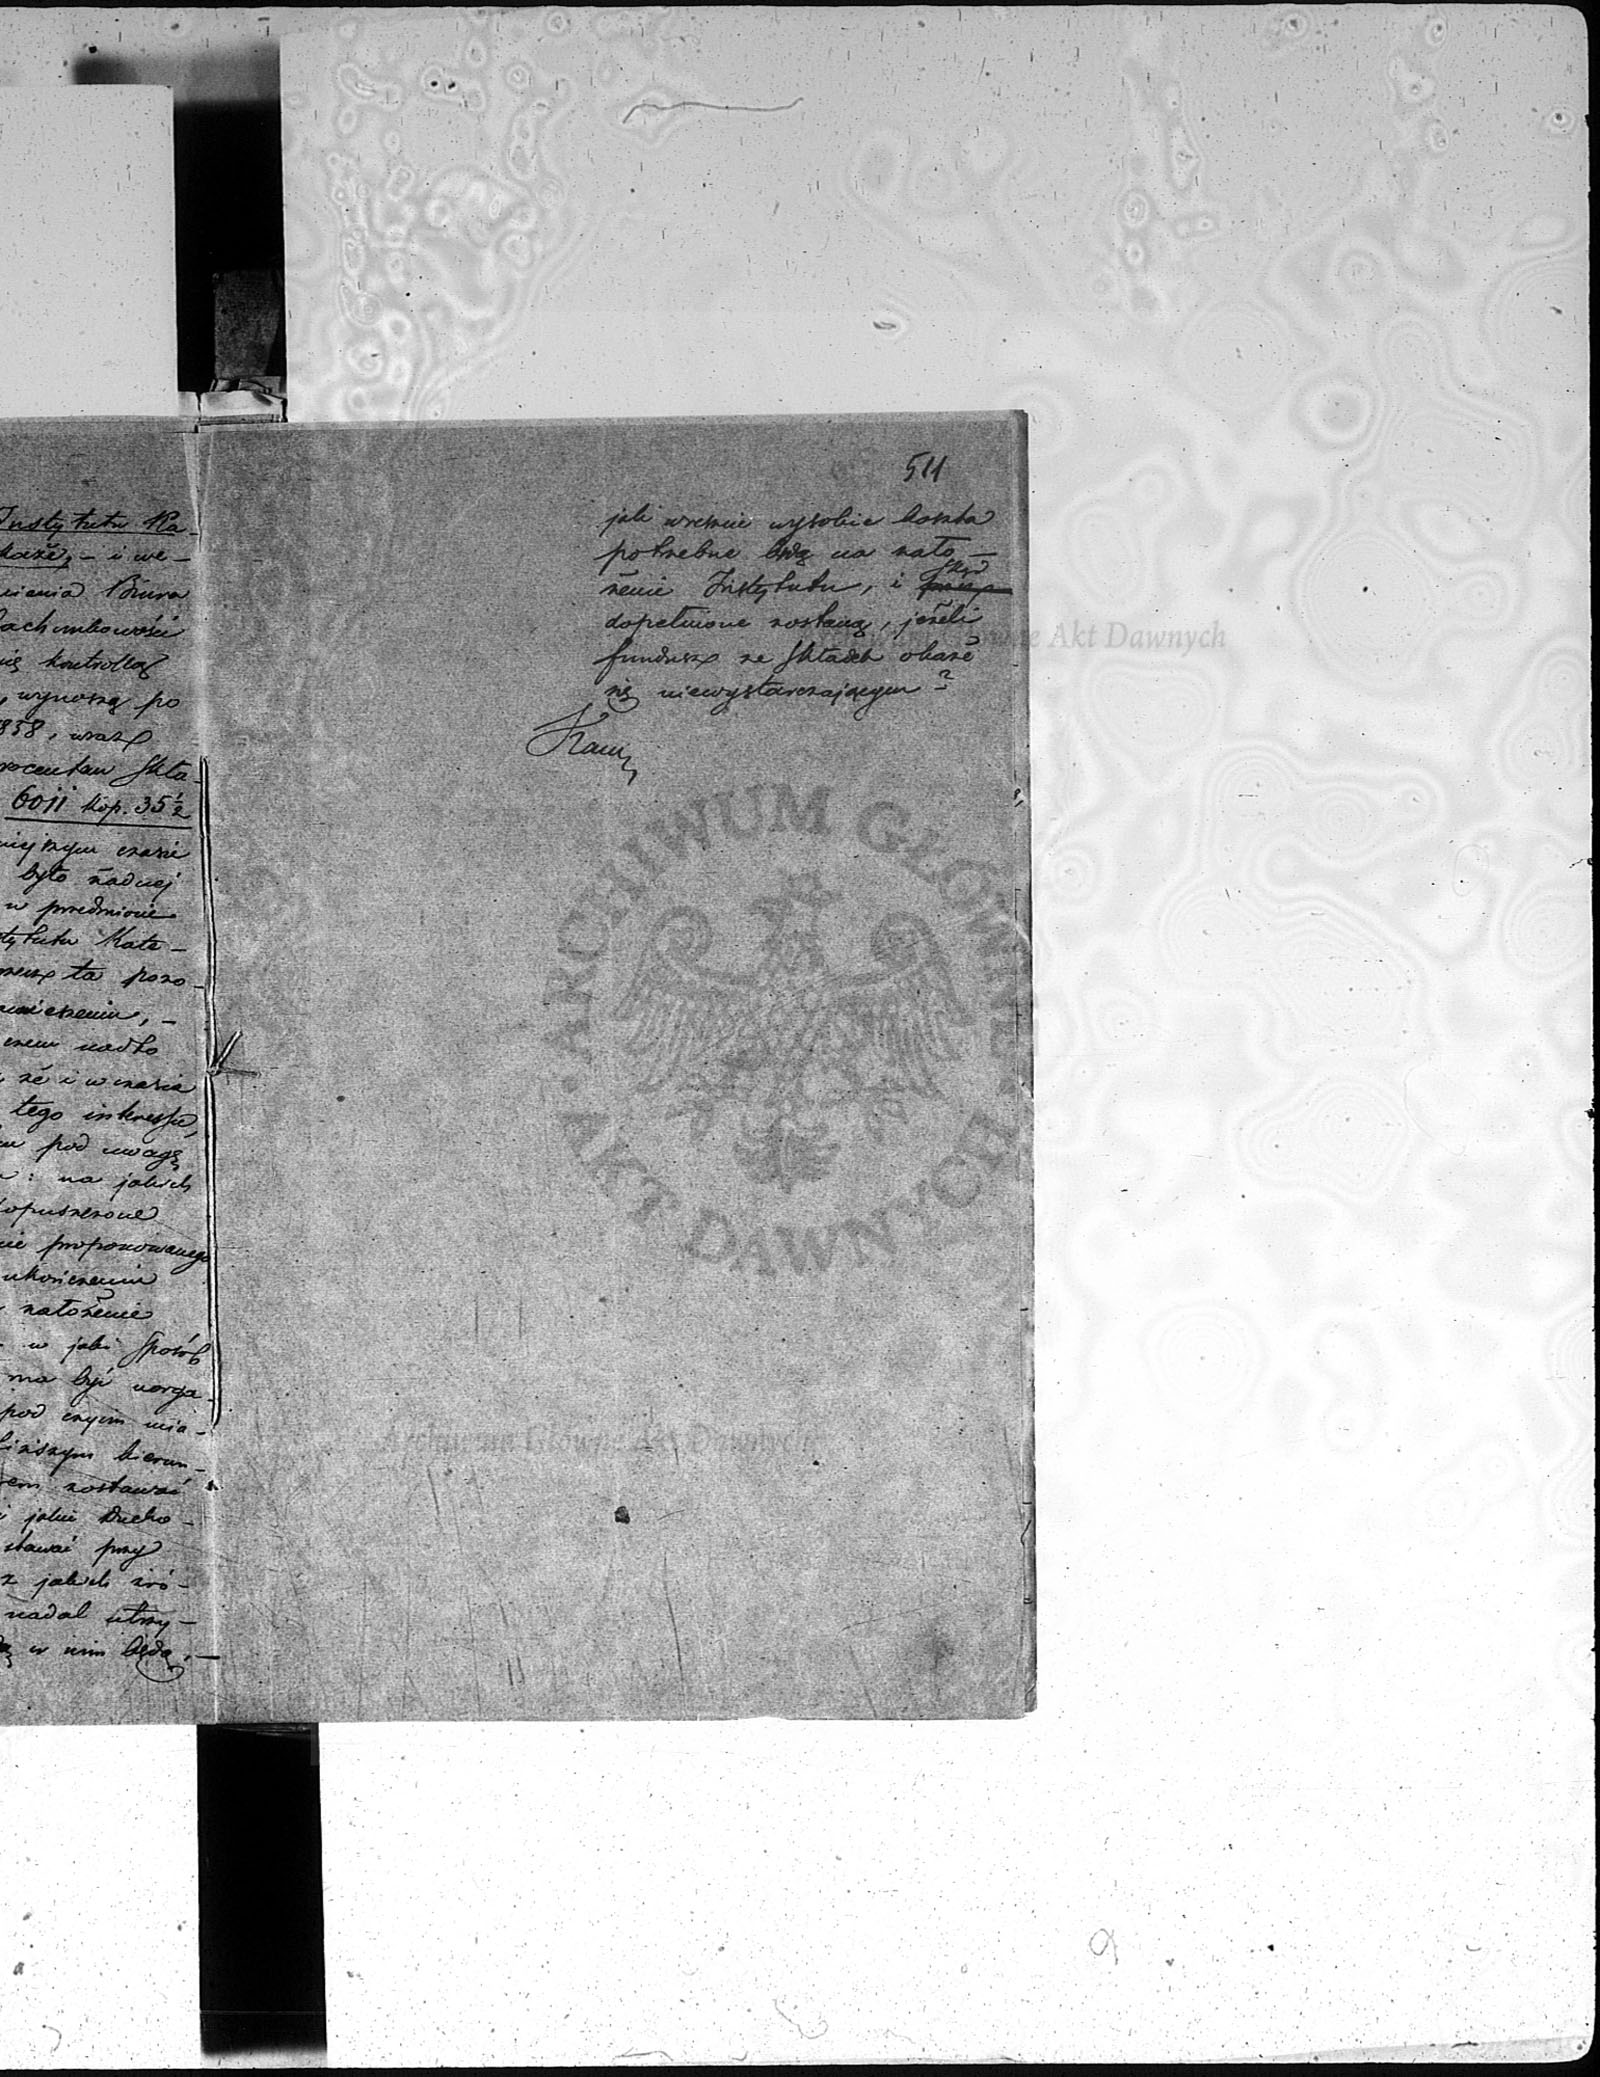 Instytutu Ka-
każe, – i we-
nienia Biura
achunkowości
nię kontrollą
, wynoszą po
838, wraz
rocentem Skła-
6011 kop. 35½
niejszym czasie
było żadnej
w przedmiocie
tytutu Kate-
rzecz ta pozo-
wieszeniu, –
czem nadto
, że i w czasie
tego interessu,
pod uwagę
: na jakich
opuszczone
nie proponowanego
ukończeniu
założenie
w jaki Sposób
ma być uorga-
pod czyim
liższym kierun-
rem zostawać
i jakie Ducho-
stawać przy
z jakich źró-
nadal utrzy-
w nim będą, –
511
jaki wreszcie wysokie koszta
potrzebne będą na zało –
żenie Instytutu, i skąd
dopełnione zostaną, jeżeli
fundusz ze Składek okaże
się niewystarczającym?
ARCHIWUM GŁÓWNE AKT DAWNYCH
Główne Akt Dawnych
Archiwum Główne Akt Dawnych